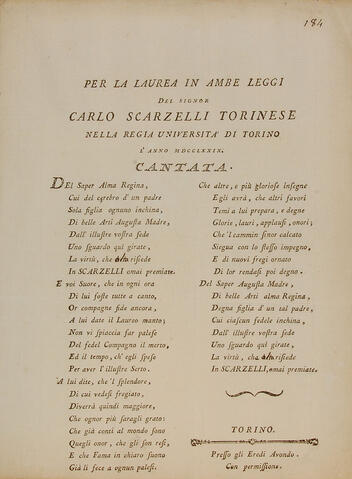 184
PER LA LAUREA IN AMBE LEGGI
DEL SIGNOR
CARLO SCARZELLI TORINESE
NELLA REGIA UNIVERSITA' DI TORINO
L'ANNO MDCCLXXIX.
CANTATA.
DEl Saper Alma Regina,
Cui del cerebro d' un padre
Sola figlia ognuno inchina,
Di belle Arti Augusta Madre,
Dall' illustre vostra sede
Uno sguardo quì girate,
La virtù, che risiede
In SCARZELLI omai premiate.
E voi Suore, che in ogni ora
Di lui foste tutte a canto,
Or compagne fide ancora,
A lui date il Lauroo manto;
Non vi spiaccia far palese
Del fedel Compagno il merto,
Ed il tempo, ch' egli spese
Per aver l'illustre Serto.
A lui dite, che 'l splendore,
Di cui vedesi fregiato,
Diverrà quindi maggiore,
Che ognor più saragli grato:
Che già conti al mondo sono
Quegli onor, che gli son resi,
E che Fama in chiaro suono
Già li fece a ognun palesi.
Che altre, e più gloriose insegne
Egli avrà, che altri favori
Temi a lui prepara, e degne
Glorie, lauri, applausi, onori;
Che 'l cammin sinor calcato
Siegua con lo stesso impegno,
E di nuovi fregi ornato
Di lor rendasi poi degno.
Del Saper Augusta Madre,
Di belle Arti alma Regina,
Degna figlia d' un tal padre,
Cui ciascun fedele inchina,
Dall' illustre vostra sede
Uno sguardo quì girate,
La virtù, che risiede
In SCARZELLI, omai premiate.
TORINO.
Presso gli Eredi Avondo.
Con permissione.